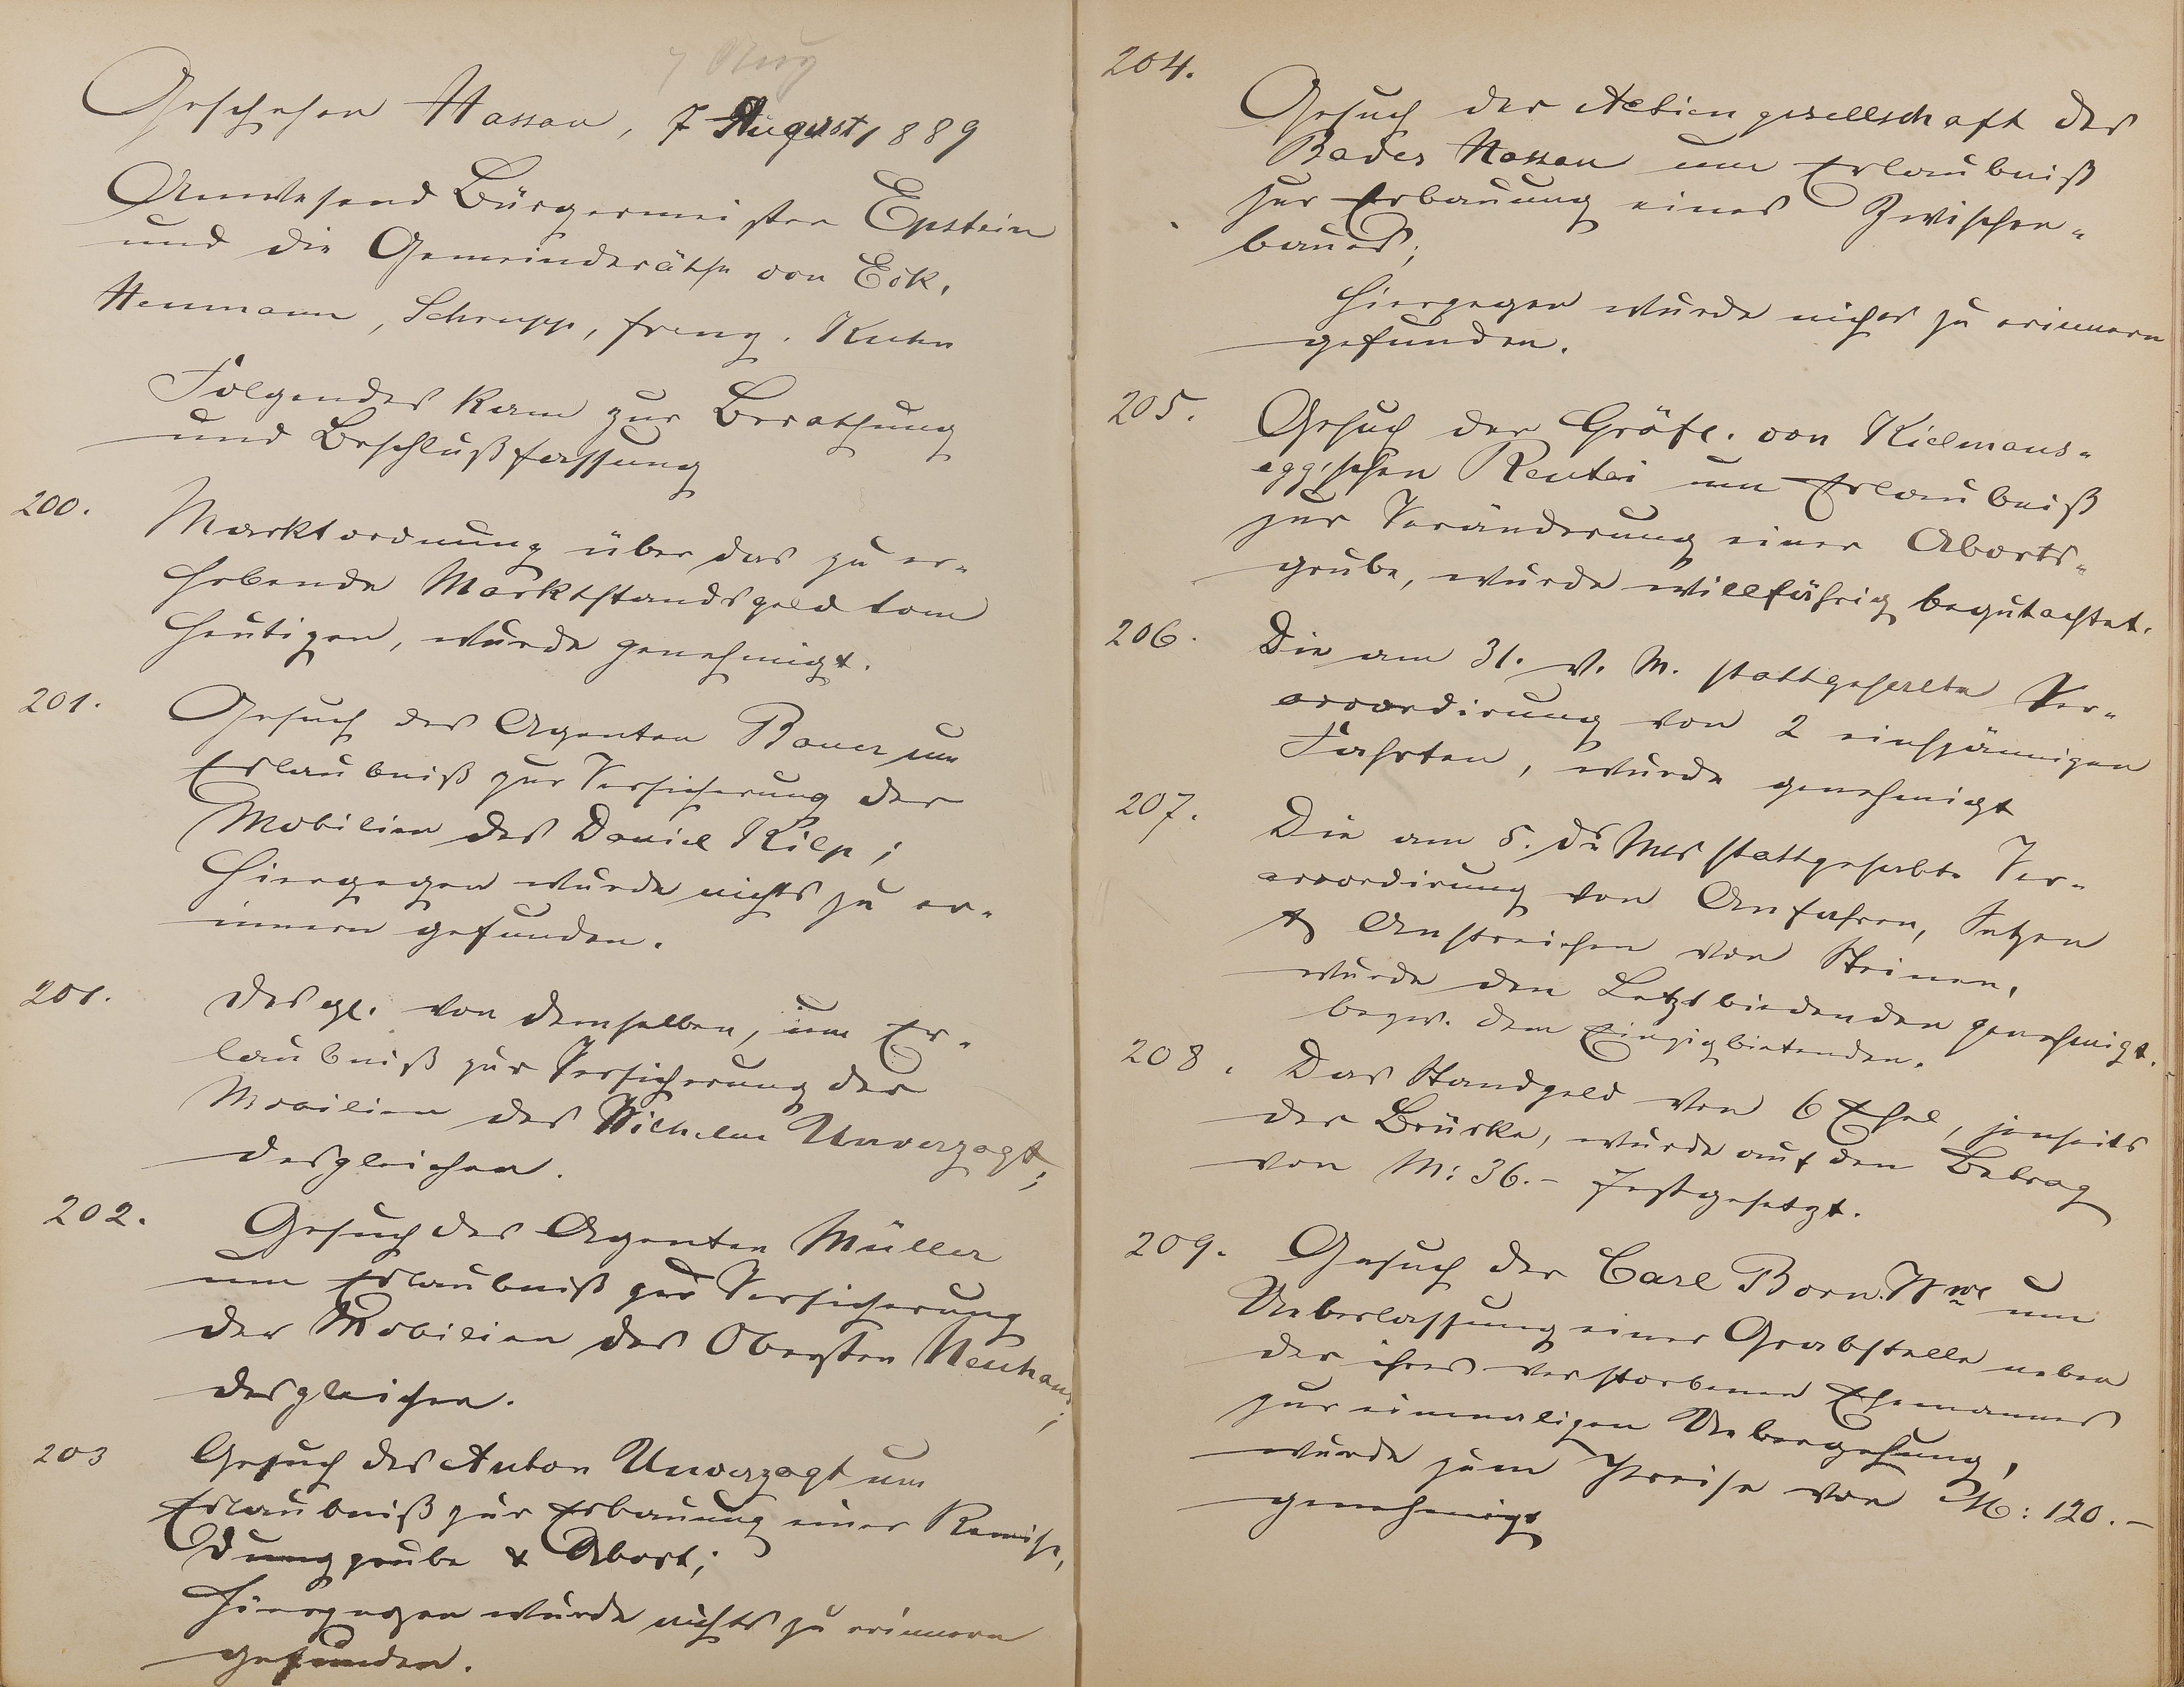 7 Aug
Geschehen Nassau, 7 August 1889
Anwesend Bürgermeister Epstein
und die Gemeinderäthe von Eck,
Heumann, Schrupp, freng. Kuhn
Folgendes kam zur Berathung
und Beschlußfassung
200. Marktordnung über das zu er-
hebende Marktstandsgeld vom
Heutigen, wurde genehmigt.
201. Gesuch des Agenten Bauer um
Erlaubniß zur Versicherung der
Mobilien des Daniel Kilp;
Hiergegen wurde nichts zu er-
innern gefunden.
201. desgl. von demselben, um Er-
laubniß zur Versicherung der
Mobilien des Wilhelm Unverzagt;
desgleichen.
202. Gesuch des Agenten Müller
um Erlaubniß zur Versicherung
der Mobilien des Obersten Neuhaus;
desgleichen.
203 Gesuch des Anton Unverzagt um
Erlaubniß zur Erbauung einer Remise,
Dunggrube & Abort;
Hiergegen wurde nichts zu erinnern
gefunden.
204. Gesuch der Actiengesellschaft des
Bades Nassau um Erlaubniß
zur Erbauung eines Zwischen-
baues;
Hiergegen wurde nichts zu erinnern
gefunden.
205. Gesuch der Gräfl. von Kielmans-
egg'schen Rentei um Erlaubniß
zur Veränderung einer Aborts-
grube, wurde willfährig begutachtet.
206. Die am 31. v. M. stattgehalte Ver-
accordirung von 2 einspännigen
Fahrten, wurde genehmigt
207. Die am 5. ds Mts stattgehabte Ver-
accordirung von Anfahren, Setzen
& Anstreichen von Steinen,
wurde den Letztbiedenden genehmigt.
bezw. dem Einzigbietenden.
208. Das Standgeld von 6 Esel, jenseits
der Brücke, wurde auf den Betrag
von M: 36.- festgesetzt.
209. Gesuch der Carl Born Wwe um
Ueberlassung einer Grabstelle neben
der ihres verstorbenen Ehemannes
zur einmaligen Uebergehung,
wurde zum Preise von M: 120.-
genehmigt